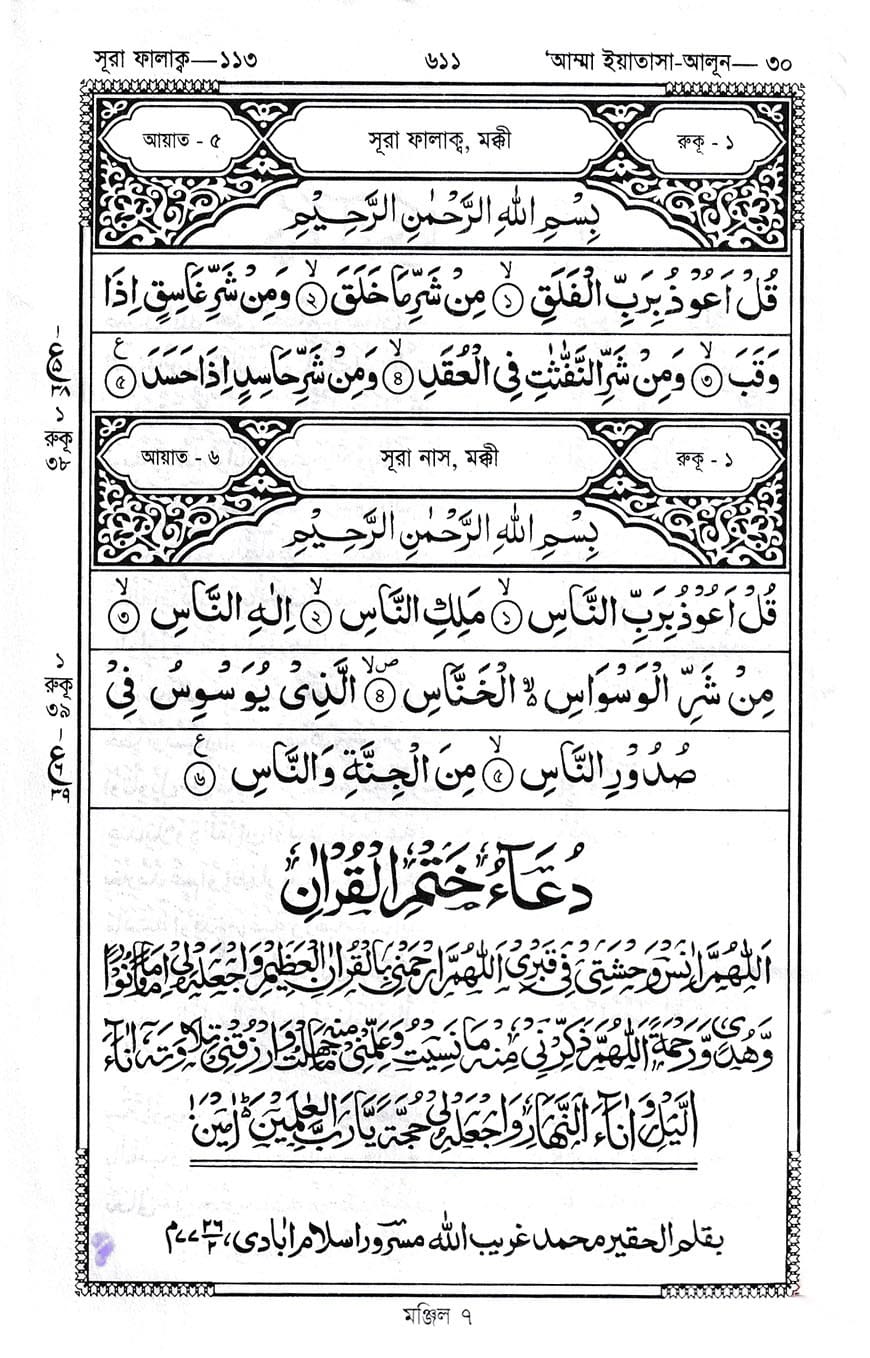 সূরা ফালাক্ব—১১৩ ৬১১ ‘আম্মা ইয়াতাসা-আলূন— ৩০
আয়াত - ৫ সূরা ফালাক্ব, মক্কী রুকূ - ১
بِسْمِ اللهِ الرَّحْمٰنِ الرَّحِيْمِ
قُلْ اَعُوْذُ بِرَبِّ الْفَلَقِ ۙ‏ ১ مِنْ شَرِّ مَا خَلَقَ ۙ‏ ২ وَمِنْ شَرِّ غَاسِقٍ اِذَا
وَقَبَ ۙ‏ ৩ وَمِنْ شَرِّ النَّفّٰثٰتِ فِى الْعُقَدِ ۙ‏ ৪ وَمِنْ شَرِّ حَاسِدٍ اِذَا حَسَدَ ৫ ع
১
রুকূ
৩৮
আয়াত - ৬ সূরা নাস, মক্কী রুকূ - ১
بِسْمِ اللهِ الرَّحْمٰنِ الرَّحِيْمِ
قُلْ اَعُوْذُ بِرَبِّ النَّاسِ ۙ‏ ১ مَلِكِ النَّاسِ ۙ‏ ২ اِلٰهِ النَّاسِ ۙ‏ ৩
مِنْ شَرِّ الْوَسْوَاسِ ۙ۬ الْخَنَّاسِ ৪ صلا الَّذِىْ يُوَسْوِسُ فِىْ
صُدُوْرِ النَّاسِ ۙ‏ ৫ مِنَ الْجِنَّةِ وَالنَّاسِ ৬ ع
১
রুকূ
৩৯
دُعَآءُ خَتْمِ الْقُرْاٰنِ
اَللّٰهُمَّ اٰنِسْ وَحْشَتِىْ فِىْ قَبْرِىْ اَللّٰهُمَّ ارْحَمْنِىْ بِالْقُرْاٰنِ الْعَظِيْمِ وَاجْعَلْهُ لِىْ اِمَامًا وَّنُوْرًا
وَّهُدًى وَّرَحْمَةً اَللّٰهُمَّ ذَكِّرْنِىْ مِنْهُ مَا نَسِيْتُ وَعَلِّمْنِىْ مِنْهُ مَا جَهِلْتُ وَارْزُقْنِىْ تِلَاوَتَهٗ اٰنَآءَ
الَّيْلِ وَاٰنَآءَ النَّهَارِ وَاجْعَلْهُ لِىْ حُجَّةً يَّا رَبَّ الْعٰلَمِيْنَ ؕ اٰمِيْنَ!
بقلم الحقير محمد غريب الله مسرور اسلام اٰبادى، ٢٦/٢ ٧٧م
মঞ্জিল ৭